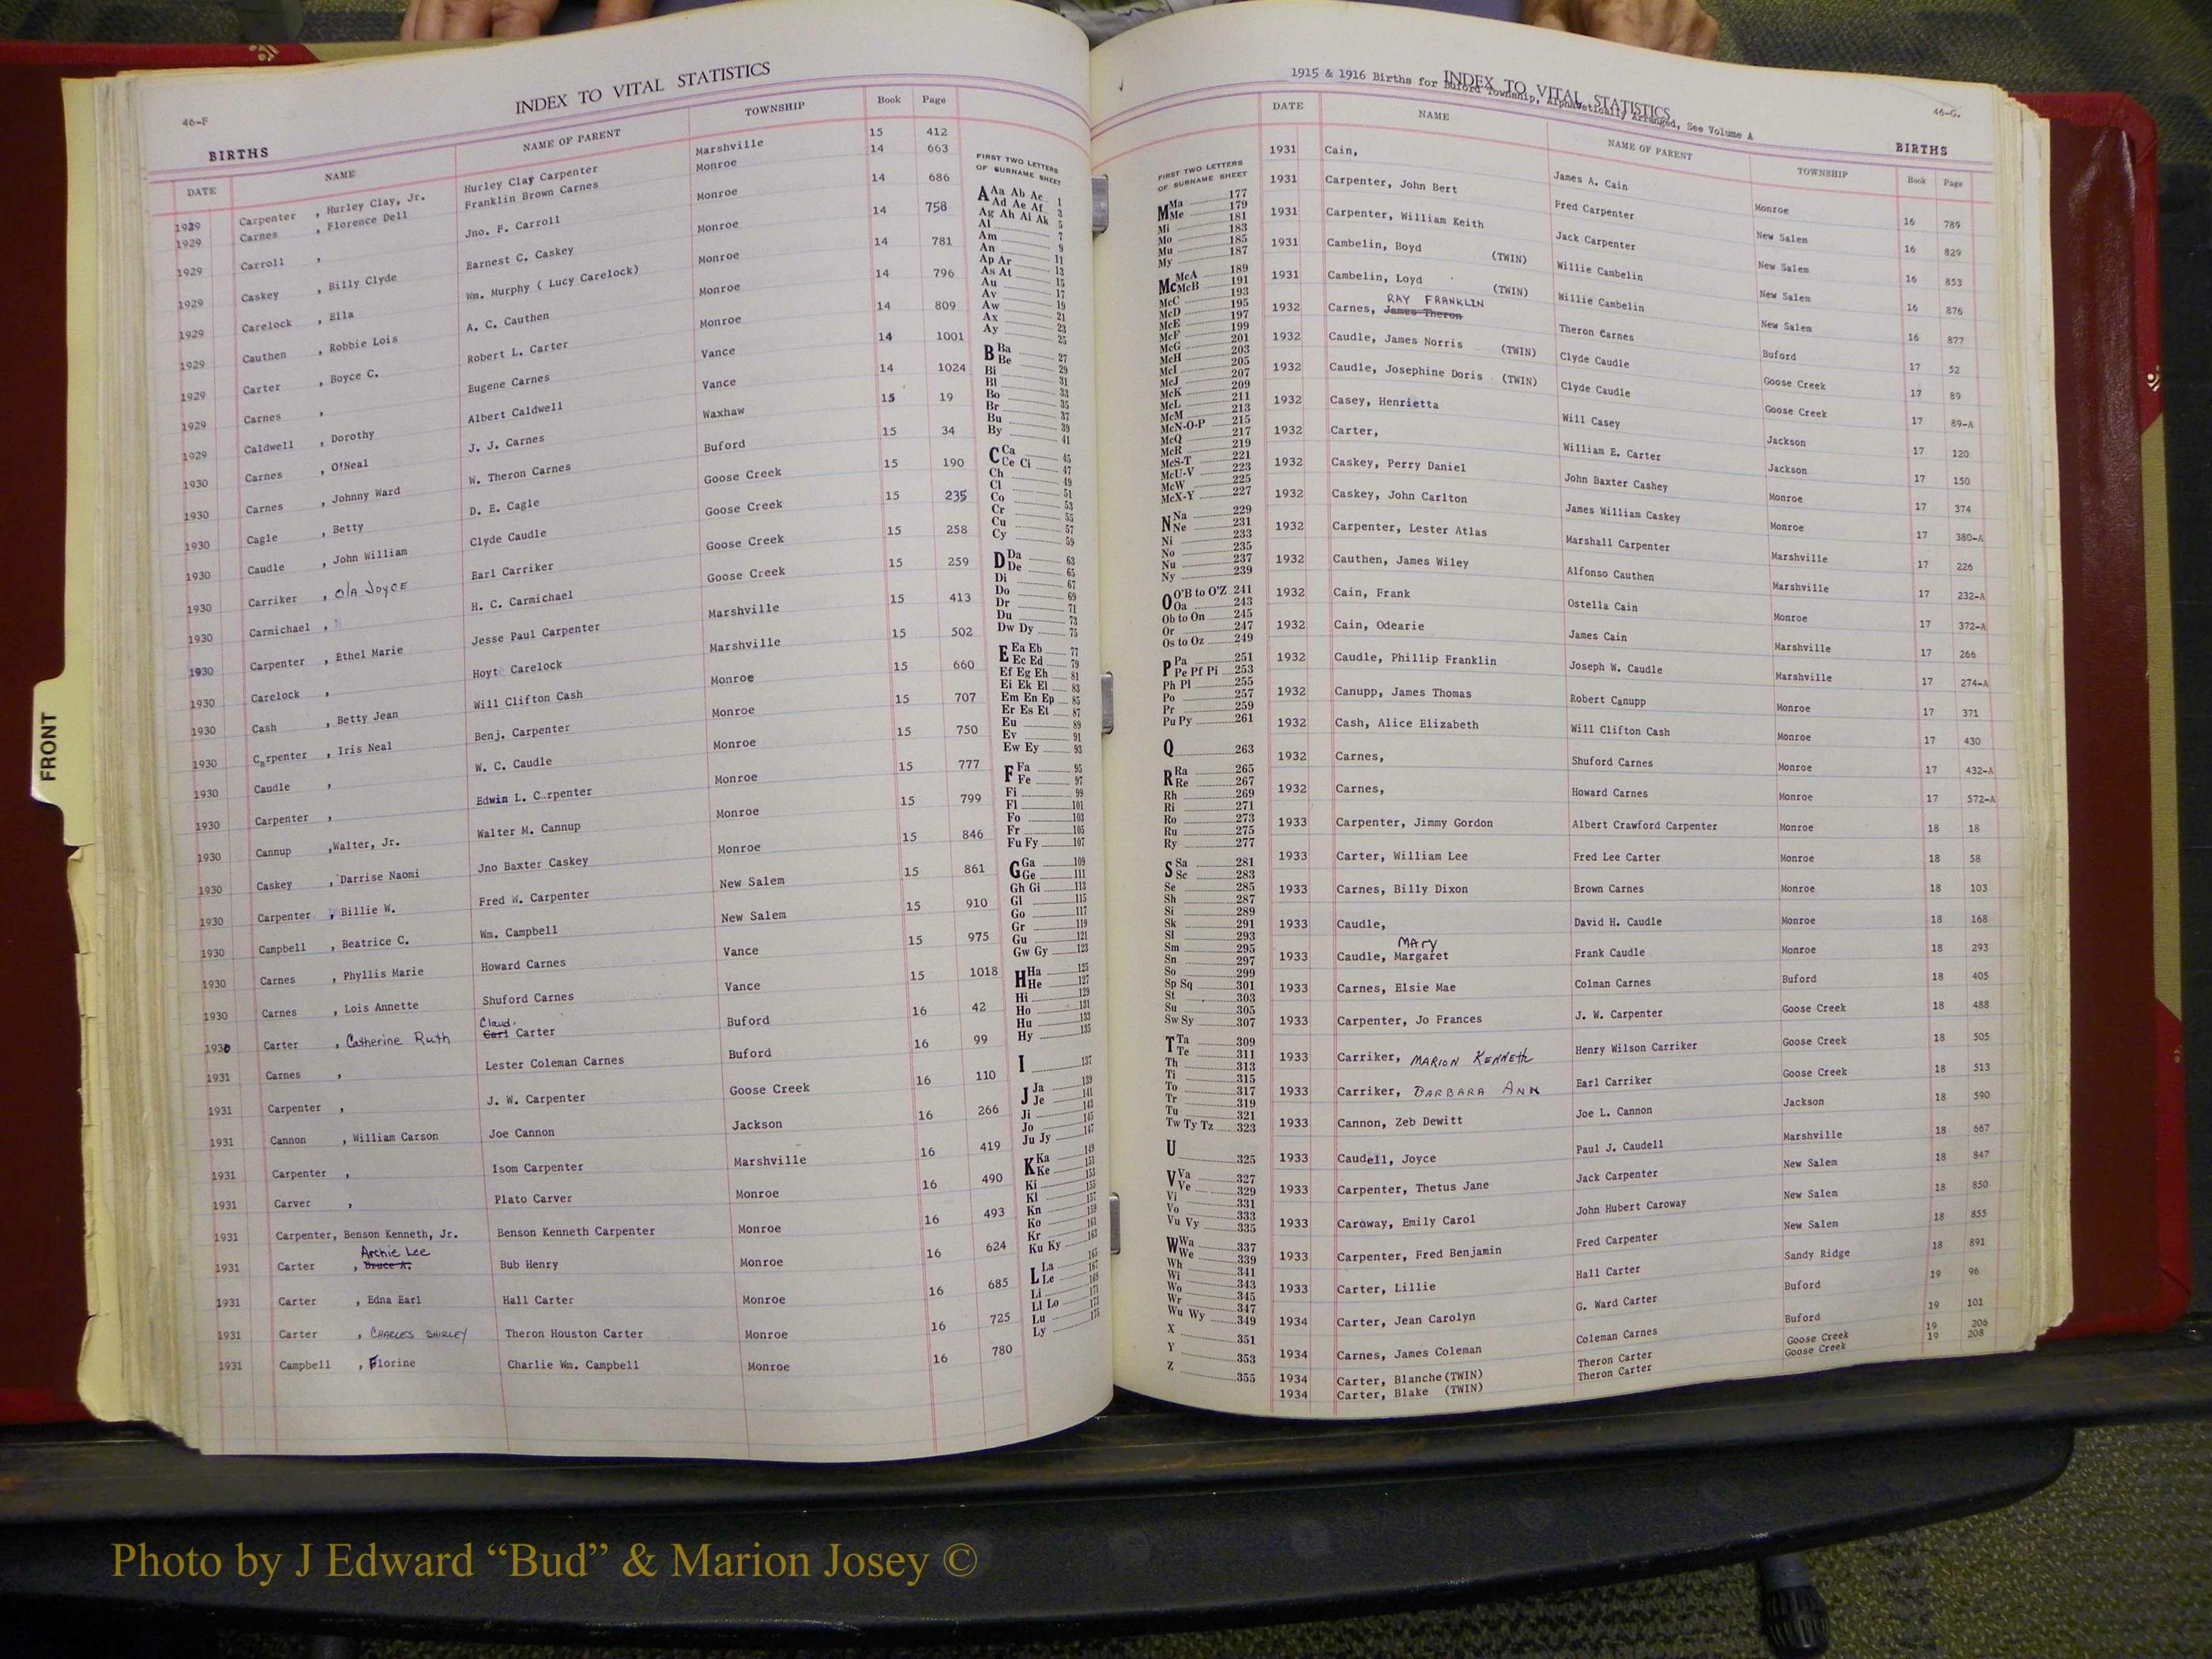 46-F
INDEX TO VITAL STATISTICS
BIRTHS
DATE NAME NAME OF PARENT TOWNSHIP Book Page
1929 Carpenter , Hurley Clay, Jr. Hurley Clay Carpenter Marshville 15 412
1929 Carnes , Florence Dell Franklin Brown Carnes Monroe 14 663
1929 Carroll , Jno. F. Carroll Monroe 14 686
1929 Caskey , Billy Clyde Earnest C. Caskey Monroe 14 758
1929 Carelock , Ella Wm. Murphy ( Lucy Carelock) Monroe 14 781
1929 Cauthen , Robbie Lois A. C. Cauthen Monroe 14 796
1929 Carter , Boyce C. Robert L. Carter Monroe 14 809
1929 Carnes , Eugene Carnes Vance 14 1001
1929 Caldwell , Dorothy Albert Caldwell Vance 14 1024
1930 Carnes , O'Neal J. J. Carnes Waxhaw 15 19
1930 Carnes , Johnny Ward W. Theron Carnes Buford 15 34
1930 Cagle , Betty D. E. Cagle Goose Creek 15 190
1930 Caudle , John William Clyde Caudle Goose Creek 15 235
1930 Carriker , O/A JOYCE Earl Carriker Goose Creek 15 258
1930 Carmichael , H. C. Carmichael Goose Creek 15 259
1930 Carpenter , Ethel Marie Jesse Paul Carpenter Marshville 15 413
1930 Carelock , Hoyt Carelock Marshville 15 502
1930 Cash , Betty Jean Will Clifton Cash Monroe 15 660
1930 Carpenter , Iris Neal Benj. Carpenter Monroe 15 707
1930 Caudle , W. C. Caudle Monroe 15 750
1930 Carpenter , Edwin L. Carpenter Monroe 15 777
1930 Cannup ,Walter, Jr. Walter M. Cannup Monroe 15 799
1930 Caskey , Darrise Naomi Jno Baxter Caskey Monroe 15 846
1930 Carpenter , Billie W. Fred W. Carpenter New Salem 15 861
1930 Campbell , Beatrice C. Wm. Campbell New Salem 15 910
1930 Carnes , Phyllis Marie Howard Carnes Vance 15 975
1930 Carnes , Lois Annette Shuford Carnes Vance 15 1018
1930 Carter , Catherine Ruth Claud. Earl Carter Buford 16 42
1931 Carnes , Lester Coleman Carnes Buford 16 99
1931 Carpenter , J. W. Carpenter Goose Creek 16 110
1931 Cannon , William Carson Joe Cannon Jackson 16 266
1931 Carpenter , Isom Carpenter Marshville 16 419
1931 Carver , Plato Carver Monroe 16 490
1931 Carpenter, Benson Kenneth, Jr. Benson Kenneth Carpenter Monroe 16 493
Archie Lee
1931 Carter , Bruce A. Bub Henry Monroe 16 624
1931 Carter , Edna Earl Hall Carter Monroe 16 685
1931 Carter , CHARLES SHIRLEY Theron Houston Carter Monroe 16 725
1931 Campbell , Florine Charlie Wm. Campbell Monroe 16 780
FIRST TWO LETTERS
OF SURNAME SHEET
A Aa Ab Ac 1
Ad Ae Af 3
Ag Ah Ai Ak 5
Al 7
Am 9
An 11
Ap Ar 13
As At 15
Au 17
Av 19
Aw 21
Ax 23
Ay 25
B Ba 27
Be 29
Bi 31
Bl 33
Bo 35
Br 37
Bu 39
By 41
C Ca 45
Ce Ci 47
Ch 49
Cl 51
Co 53
Cr 55
Cu 57
Cy 59
D Da 63
De 65
Di 67
Do 69
Dr 71
Du 73
Dw Dy 75
E Ea Eb 77
Ec Ed 79
Ef Eg Eh 81
Ei Ek El 83
Em En Ep 85
Er Es Et 87
Eu 89
Ev 91
Ew Ey 93
F Fa 95
Fe 97
Fi 99
Fl 101
Fo 103
Fr 105
Fu Fy 107
G Ga 109
Ge 111
Gh Gi 113
Gl 115
Go 117
Gr 119
Gu 121
Gw Gy 123
H Ha 125
He 127
Hi 129
Ho 131
Hu 133
Hy 135
I 137
J Ja 139
Je 141
Ji 143
Jo 145
Ju Jy 147
K Ka 149
Ke 151
Ki 153
Kl 155
Kn 157
Ko 159
Kr 161
Ku Ky 163
L La 165
Le 167
Li 169
Ll Lo 171
Lu 173
Ly 175
FRONT
1915 & 1916 Births for Buford Township, Alphabetically Arranged, See Volume A
INDEX TO VITAL STATISTICS
46-G.
BIRTHS
FIRST TWO LETTERS
OF SURNAME SHEET
M Ma 177
Me 179
Mi 181
Mo 183
Mu 185
My 187
Mc McA 189
McB 191
McC 193
McD 195
McE 197
McF 199
McG 201
McH 203
McI 205
McJ 207
McK 209
McL 211
McM 213
McN-O-P 215
McQ 217
McR 219
McS-T 221
McU-V 223
McW 225
McX-Y 227
N Na 229
Ne 231
Ni 233
No 235
Nu 237
Ny 239
O O'B to O'Z 241
Oa 243
Ob to On 245
Or 247
Os to Oz 249
P Pa 251
Pe Pf Pi 253
Ph Pl 255
Po 257
Pr 259
Pu Py 261
Q 263
R Ra 265
Re 267
Rh 269
Ri 271
Ro 273
Ru 275
Ry 277
S Sa 281
Sc 283
Se 285
Sh 287
Si 289
Sk 291
Sl 293
Sm 295
Sn 297
So 299
Sp Sq 301
St 303
Su 305
Sw Sy 307
T Ta 309
Te 311
Th 313
Ti 315
To 317
Tr 319
Tu 321
Tw Ty Tz 323
U 325
V Va 327
Ve 329
Vi 331
Vo 333
Vu Vy 335
W Wa 337
We 339
Wh 341
Wi 343
Wo 345
Wr 347
Wu Wy 349
X 351
Y 353
Z 355
DATE NAME NAME OF PARENT TOWNSHIP Book Page
1931 Cain, James A. Cain Monroe 16 789
1931 Carpenter, John Bert Fred Carpenter New Salem 16 829
1931 Carpenter, William Keith Jack Carpenter New Salem 16 853
1931 Cambelin, Boyd (TWIN) Willie Cambelin New Salem 16 876
1931 Cambelin, Loyd (TWIN) Willie Cambelin New Salem 16 877
RAY FRANKLIN
1932 Carnes, James Theron Theron Carnes Buford 17 52
1932 Caudle, James Norris (TWIN) Clyde Caudle Goose Creek 17 89
1932 Caudle, Josephine Doris (TWIN) Clyde Caudle Goose Creek 17 89-A
1932 Casey, Henrietta Will Casey Jackson 17 120
1932 Carter, William E. Carter Jackson 17 150
1932 Caskey, Perry Daniel John Baxter Cashey Monroe 17 374
1932 Caskey, John Carlton James William Caskey Monroe 17 380-A
1932 Carpenter, Lester Atlas Marshall Carpenter Marshville 17 226
1932 Cauthen, James Wiley Alfonso Cauthen Marshville 17 232-A
1932 Cain, Frank Ostella Cain Monroe 17 372-A
1932 Cain, Odearie James Cain Marshville 17 266
1932 Caudle, Phillip Franklin Joseph W. Caudle Marshville 17 274-A
1932 Canupp, James Thomas Robert Canupp Monroe 17 371
1932 Cash, Alice Elizabeth Will Clifton Cash Monroe 17 430
1932 Carnes, Shuford Carnes Monroe 17 432-A
1932 Carnes, Howard Carnes Monroe 17 572-A
1933 Carpenter, Jimmy Gordon Albert Crawford Carpenter Monroe 18 18
1933 Carter, William Lee Fred Lee Carter Monroe 18 58
1933 Carnes, Billy Dixon Brown Carnes Monroe 18 103
1933 Caudle, David H. Caudle Monroe 18 168
MARY
1933 Caudle, Margaret Frank Caudle Monroe 18 293
1933 Carnes, Elsie Mae Colman Carnes Buford 18 405
1933 Carpenter, Jo Frances J. W. Carpenter Goose Creek 18 488
1933 Carriker, MARION KENNETH Henry Wilson Carriker Goose Creek 18 505
1933 Carriker, BARBARA ANN Earl Carriker Goose Creek 18 513
1933 Cannon, Zeb Dewitt Joe L. Cannon Jackson 18 590
1933 Caudell, Joyce Paul J. Caudell Marshville 18 667
1933 Carpenter, Thetus Jane Jack Carpenter New Salem 18 847
1933 Caroway, Emily Carol John Hubert Caroway New Salem 18 850
1933 Carpenter, Fred Benjamin Fred Carpenter New Salem 18 855
1933 Carter, Lillie Hall Carter Sandy Ridge 18 891
1934 Carter, Jean Carolyn G. Ward Carter Buford 19 96
1934 Carnes, James Coleman Coleman Carnes Buford 19 101
1934 Carter, Blanche (TWIN) Theron Carter Goose Creek 19 206
1934 Carter, Blake (TWIN) Theron Carter Goose Creek 19 208
Photo by J Edward “Bud” & Marion Josey ©